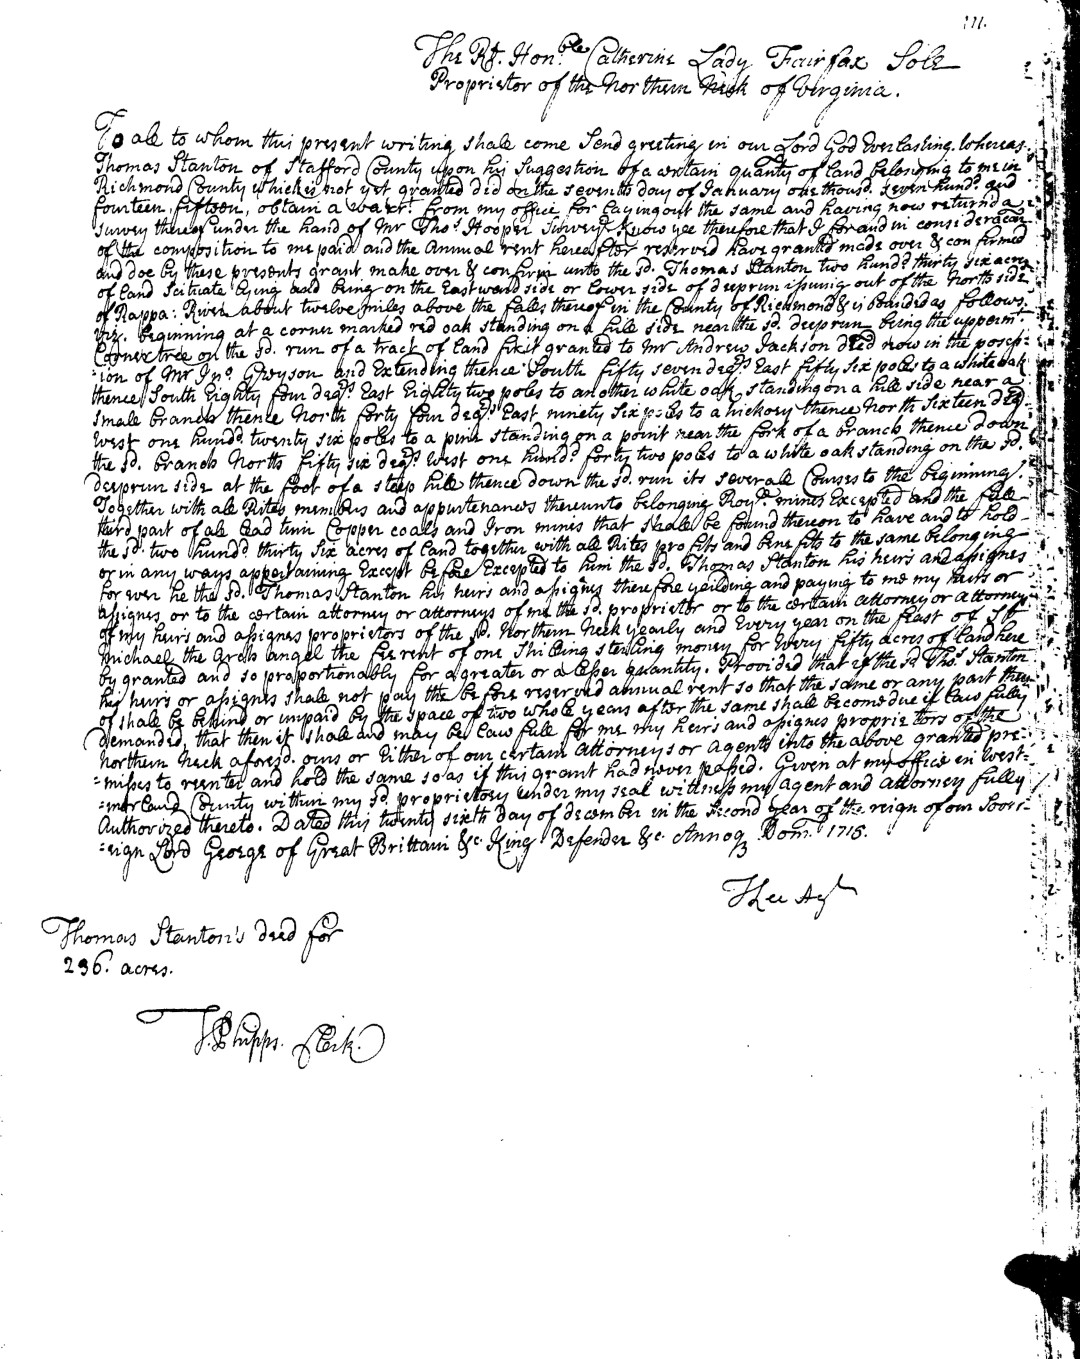 111.
The Rt. Honble Catherine Lady Fairfax Sole
Proprietor of the Northern Neck of Virginia.
To all to whom this present writing shall come Send greeting in our Lord God Everlasting. Whereas
Thomas Stanton of Stafford County upon his Suggestion of a certain quanty of land belonging to me in
Richmond County which is not yet granted did on the seventh day of January one thousd. seven hund. and
fourteen, fifteen, obtain a warrt. from my office for laying out the same and having now returnd a
survey thereof under the hand of Mr Thos. Hooper Surveyr. Know yee therefore that I for and in consideracon
of the composition to me paid and the Annual rent hereafter reserved have granted made over & confirmed
and doe by these presents grant make over & confirm unto the sd. Thomas Stanton two hund. thirty six acres
of land Scituate lying and being on the Eastward side or lower side of deeprun issuing out of the North side
of Rappa: River about twelve miles above the falls thereof in the County of Richmond & is bounded as follows
viz. beginning at a corner marked red oak standing on a hill side near the sd. deeprun being the upperm.
Corner tree on the sd. run of a tract of land first granted to Mr Andrew Jackson Decd now in the posess-
-ion of Mr Jno. Grayson and Extending thence South fifty seven degs. East fifty six poles to a white oak
thence South Eighty four degs. East Eighty two poles to another white oak standing on a hill side near a
small branch thence North forty four degs. East ninety six poles to a hickory thence North Sixteen deg.
West one hundd. twenty six poles to a pine standing on a point near the fork of a branch thence down
the sd. branch North fifty six degs. West one hund. forty two poles to a white oak standing on the sd.
deeprun side at the foot of a steep hill thence down the sd. run its severall Courses to the beginning.
Together with all Rites members and appurtenances thereunto belonging Royll. mines Excepted and the full
third part of all Lead tinn Copper coals and Iron mines that shall be found thereon to have and to hold
the sd. two hundd. thirty six acres of land together with all Rites profits and benefits to the same belonging
or in any ways appertaining Except before Excepted to him the sd. Thomas Stanton his heirs and assignes
for ever he the sd. Thomas Stanton his heirs and assignes therefore yeilding and paying to me my heirs or
assignes or to the certain attorney or attorneys of me the sd. proprietor or to the certain Attorney or Attorneys
of my heirs and assignes proprietors of the sd. Northern Neck yearly and Every year on the feast of St.
Michael the Arch angel the fee rent of one Shilling sterling money for Every fifty acres of land here
by granted and so proportionably for a greater or a lesser quantity. Provided that if the sd. Thos. Stanton
his heirs or assignes shall not pay the before reserved annual rent so that the same or any part there
of shall be behind or unpaid by the space of two whole years after the same shall become due if Lawfully
demanded, that then it shall and may be Lawfull for me my heirs and assignes proprietors of the
Northern Neck aforesd. ours or Either of our certain Attorneys or Agents into the above granted pre-
-misses to reenter and hold the same so as if this grant had never passed. Given at my office in West-
-morland County within my sd. proprietory under my seal witness my Agent and Attorney fully
Authorized thereto. Dated this twenty sixth day of december in the Second year of the reign of our Sover-
-eign Lord George of Great Brittain &c. King Defender &c. Annoq Dom. 1715.
T Lee Agt
Thomas Stanton's deed for
236. acres.
T. Phipps. Clerk.